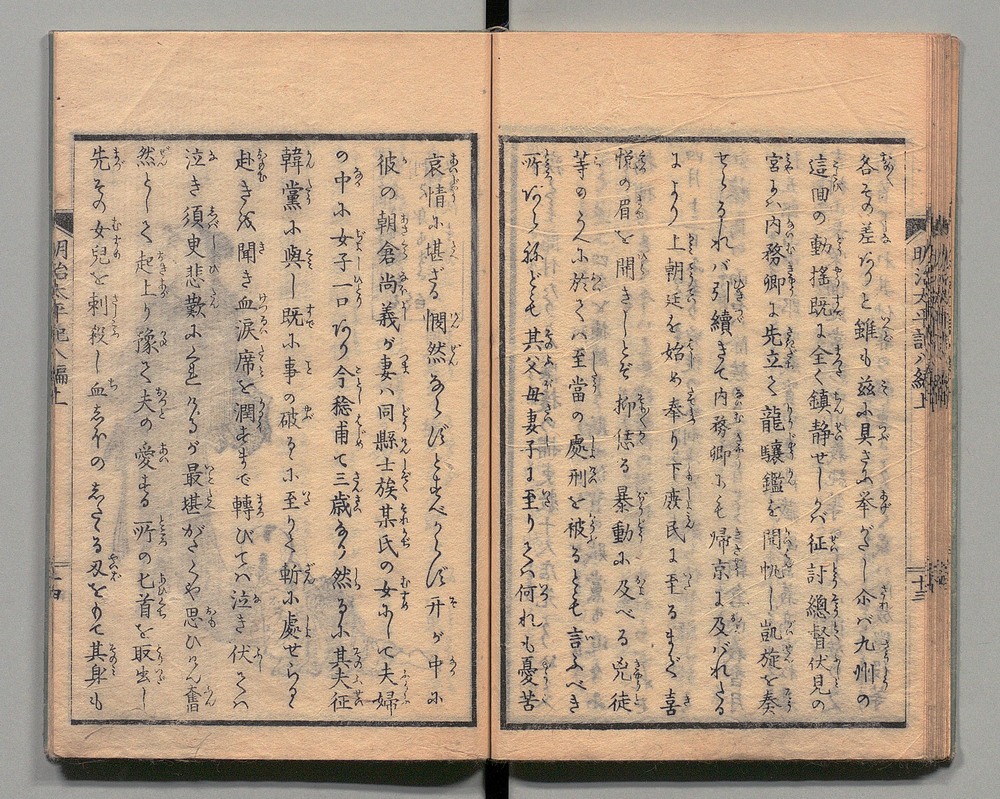 各其の差ありと雖も茲に具さに挙がたし尓バ九州の
這回の動揺既に全く鎮静せしかバ征討總督伏見の
宮にハ内務卿に先立て龍驤鑑を開帆し凱旋を奏
せらるれバ引續きて内務卿にも帰京に及バれたる
により上朝廷を始め奉り下庶民に至るまで喜
悦の眉を開きしとぞ抑慿る暴動に及べる兇徒
等のうへに於てハ至當の處刑を被るとも言ふべき
所あらねども其父母妻子に至りてハ何れも憂苦
哀情に堪ざる憫然ならずとすべからず 中に
彼の朝倉尚義が妻ハ同縣士族某氏の女にして夫婦
の中に女子一口あり今稔甫て三歳なり然るに其夫征
韓黨に與し既に事の破るゝに至りて斬に處せらるゝ
赴きを聞き血涙席を潤すまで轉びてハ泣き伏てハ
泣き須臾悲歎にくれけるが最堪がたくや思ひけん奮
然として起上り豫て夫の愛する所の匕首を取出し
先その女兒を刺殺し血しほのしたゝる刃をもて其身も
明治太平記八編上
十三
明治太平記八編上
十四